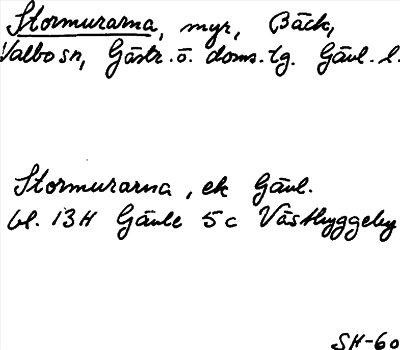 Stormurarna, myr, Bäck,
Valbo sn, Gästr. ö. doms. tg. Gävl. l.
Stormurarna, ek Gävl.
bl. 13H Gävle 5c Västbyggeby
SH-60